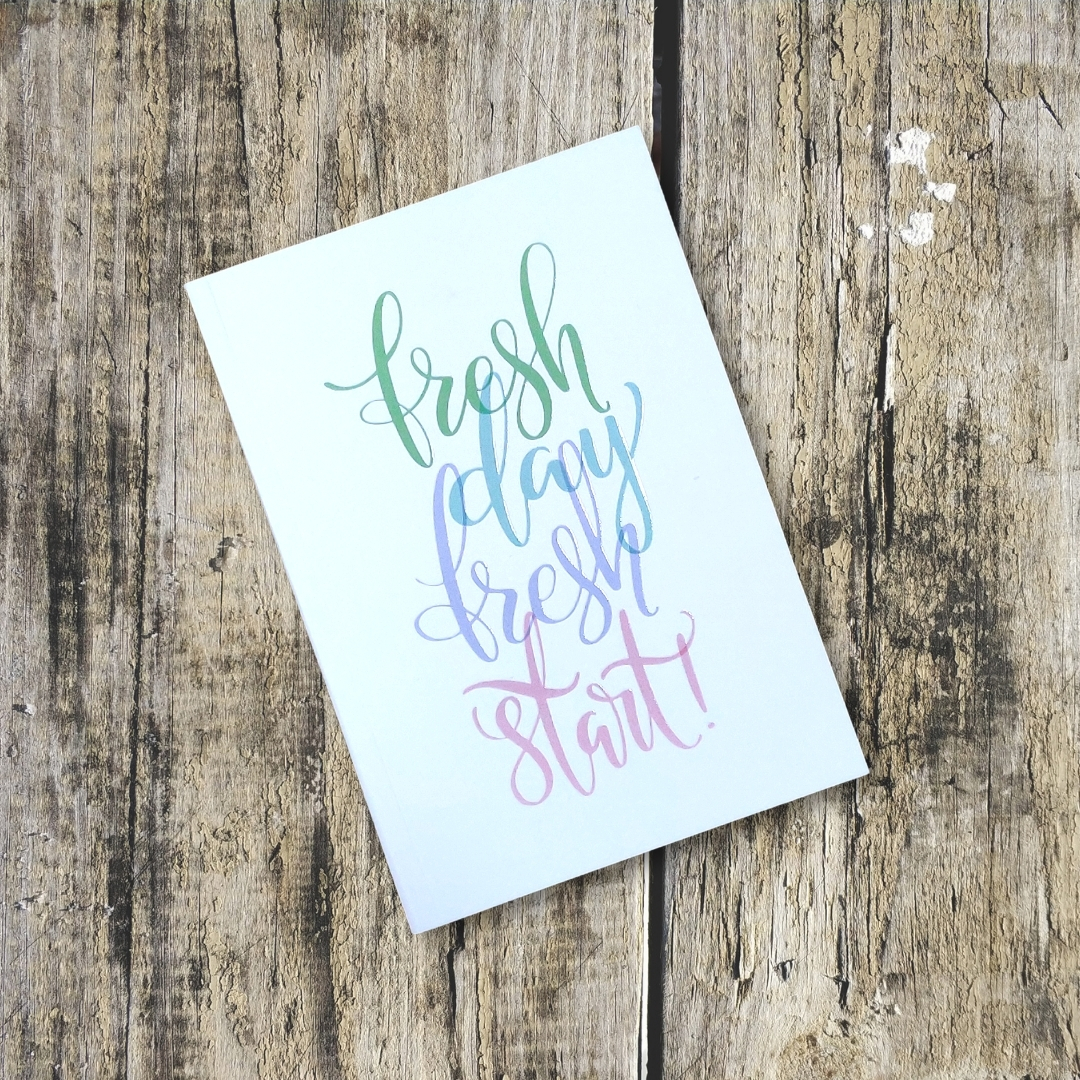 fresh
day
fresh
start!